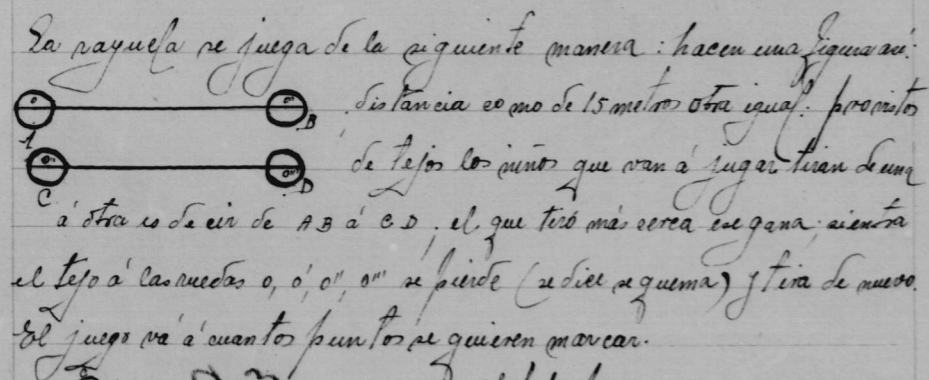 La rayuela se juega de la siguiente manera: hacen una figura así:
o o'' B distancia como de 15 metros otra igual: provistos
A
o'' o''' D de tejos los niños que van á jugar tiran de una
C
á otra es decir de AB á CD, el que tiró más cerca ese gana; si entra
el tejo á las ruedas o, ó, o'', o''' se pierde (se dice se quema) y tira de nuevo.
El juego vá á cuantos puntos se quieren marcar.